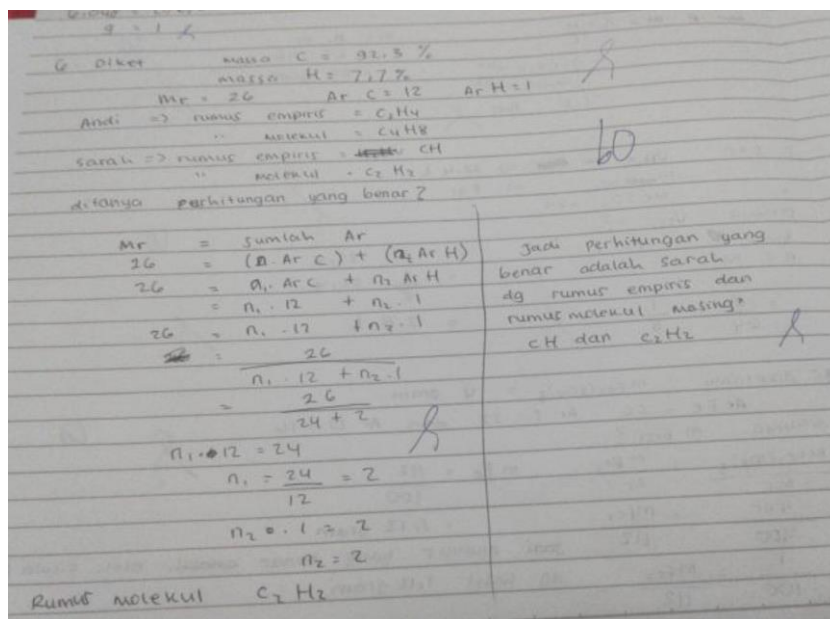 g = 1
6 Diket massa C = 92,3 %
massa H = 7,7 %
Mr = 26 Ar C = 12 Ar H = 1
Andi => rumus empiris = C2H4
" molekul = C4H8
sarah => rumus empiris = CH
" molekul = C2 H2
60
ditanya perhitungan yang benar?
Mr = jumlah Ar
26 = (n. Ar C) + (n2 Ar H)
26 = n1. Ar C + n2 Ar H
= n1 . 12 + n2 . 1
26 = n1 . 12 + n2 . 1
= 26
n1 . 12 + n2 . 1
= 26
24 + 2
n1 . 12 = 24
n1 = 24 = 2
12
n2 . 1 = 2
n2 = 2
Rumus molekul C2 H2
Jadi perhitungan yang
benar adalah sarah
dg rumus empiris dan
rumus molekul masing2
CH dan C2H2